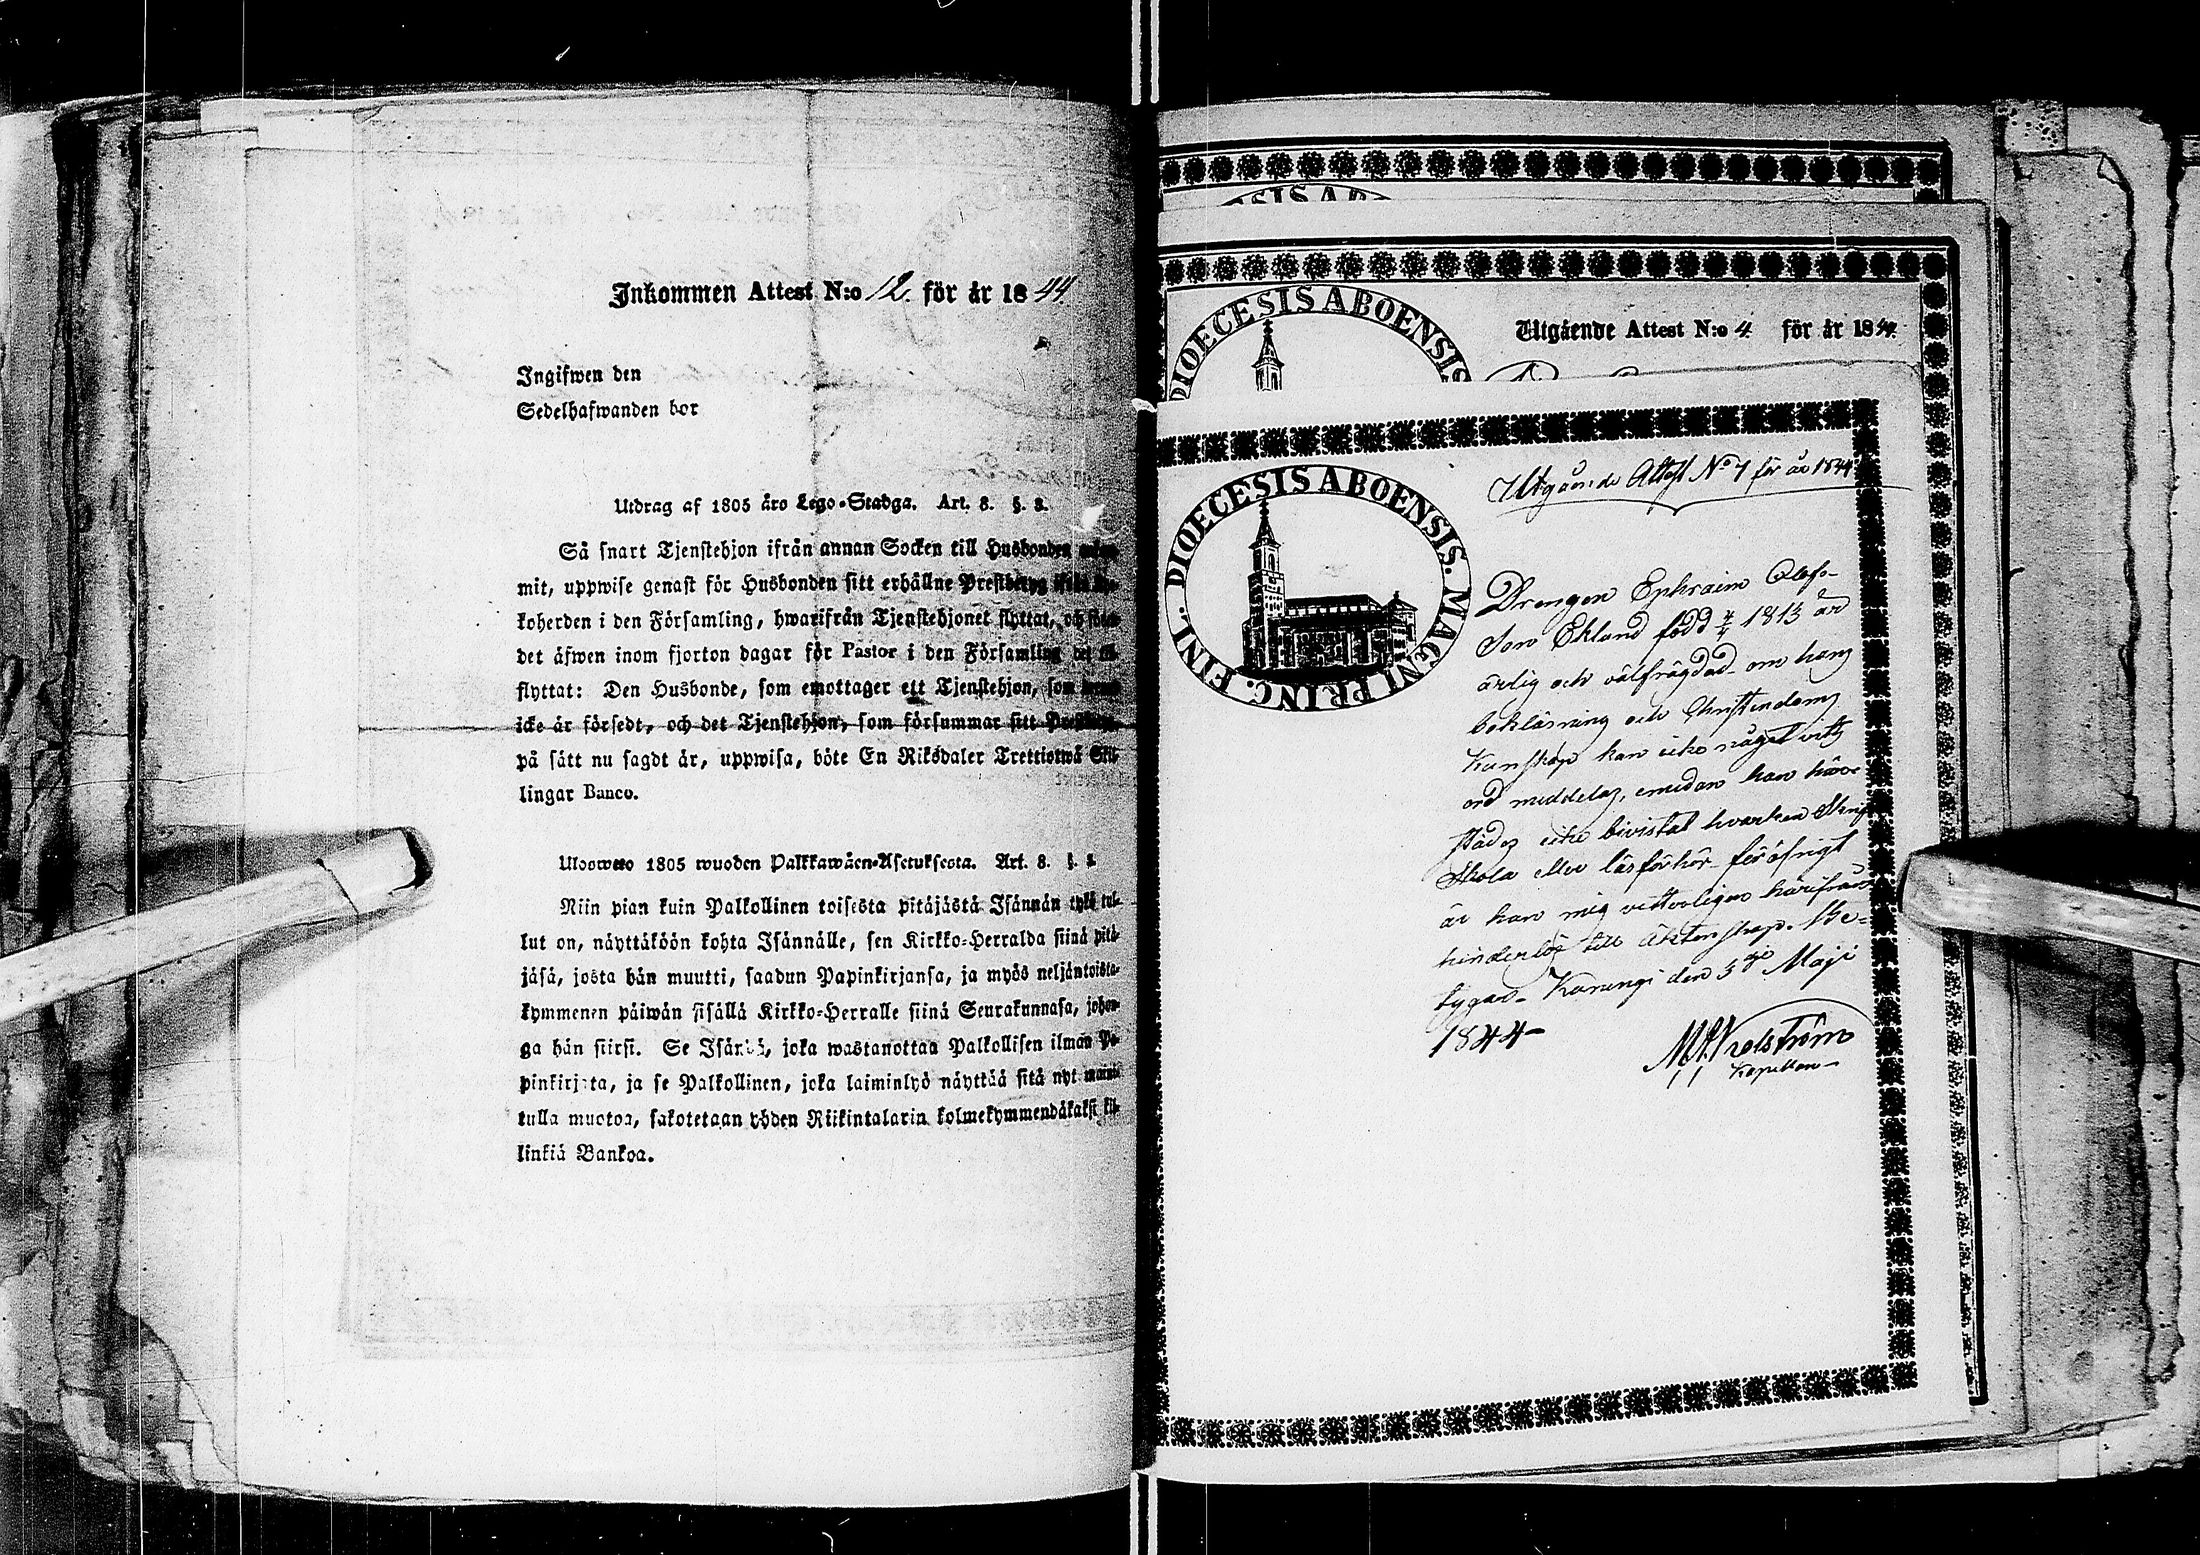 Inkommen Attest N:o 12. för år 1844
Ingifwen den
Sedelhafwanden bor
Utdrag af 1805 års Lego-Stadga. Art. 8. §. 2.
Så snart Tjenstehjon ifrån annan Socken till Husbonden
mit, uppwise genast för Husbonden sitt erhållne Prestbetyg
koherden i den Församling, hwarifrån Tjenstehjonet flyttat, och
det äfwen inom fjorton dagar för Pastor i den Församling det
flyttat: Den Husbonde, som emottager ett Tjenstehjon, som
icke är försedt, och det Tjenstehjon, som försummar sitt
på sätt nu sagdt är, uppwisa, böte En Riksdaler Trettiotwå Skil-
lingar Banco.
Uloswetto 1805 wuoden Palkkawäen-Asetuksesta. Art. 8. §. 2.
Niin pian kuin Palkollinen toisesta pitäjästä Isännän tykö tul-
lut on, näyttäköön kohta Isännälle, sen Kirkko-Herralda siinä pitä-
jäsä, josta hän muutti, saadun Papinkirjansa, ja myös neljäntoista-
kymmenen päiwän sisällä Kirkko-Herralle siinä Seurakunnasa, johon-
ga hän siirsi. Se Isändä, joka wastanottaa Palkollisen ilman Pa-
pinkirjata, ja se Palkollinen, joka laiminlyö näyttää sitä nyt
tulla muotoa, sakotetaan yhden Riikintalarin kolmekymmendäkaksi kil-
linkiä Bankoa.
DIOECESIS ABO
DIOECESIS ABOENSIS
Utgående Attest N:o 4 för år 1844.
DIOECESIS ABOENSIS. MAGNI PRINC. FINL.
Utgående Attest No 7 för år 1844
Drengen Ephraim Olofs-
son Eklund född 1813 är
ärlig och välfrägdad. om hans
bokläsning och Christendoms
Kunskap kan icke något vits
ord meddelas, emedan han häre
städes icke bivistat hvarken Skrift
Skola eller läsförhör. föröfrigt
är han mig vetterligen härifrån
hinderlös till äktenskap. Be-
tygar. Karungi den 5 Maji
1844-
Kapellan